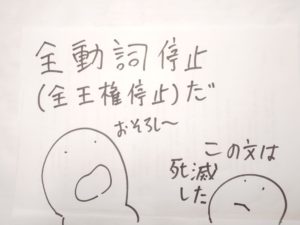 全動詞停止
(全王権停止)だ
おそろし〜
この文は
死滅
した